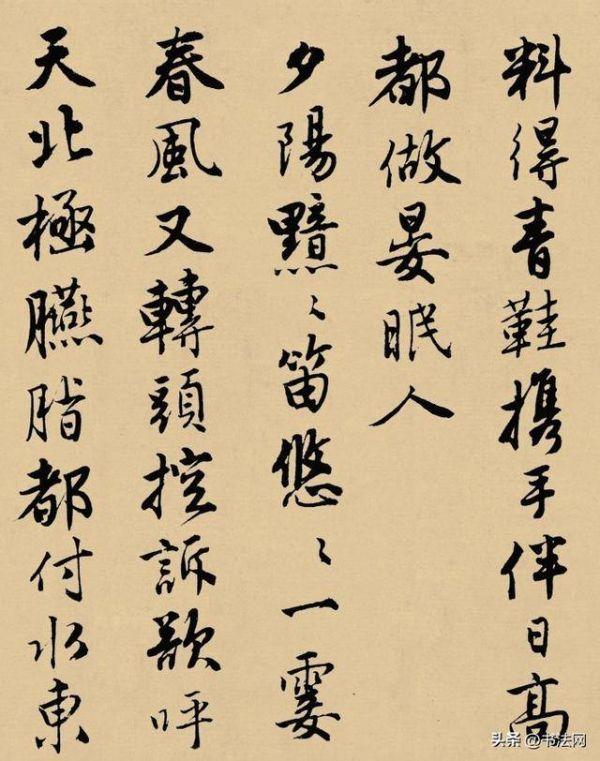 料得青鞋携手伴日高
都做晏眠人
夕陽黯〻笛悠〻一霎
春風又轉頭控訴欲呼
天北極臙脂都付水東
头条 @书法网